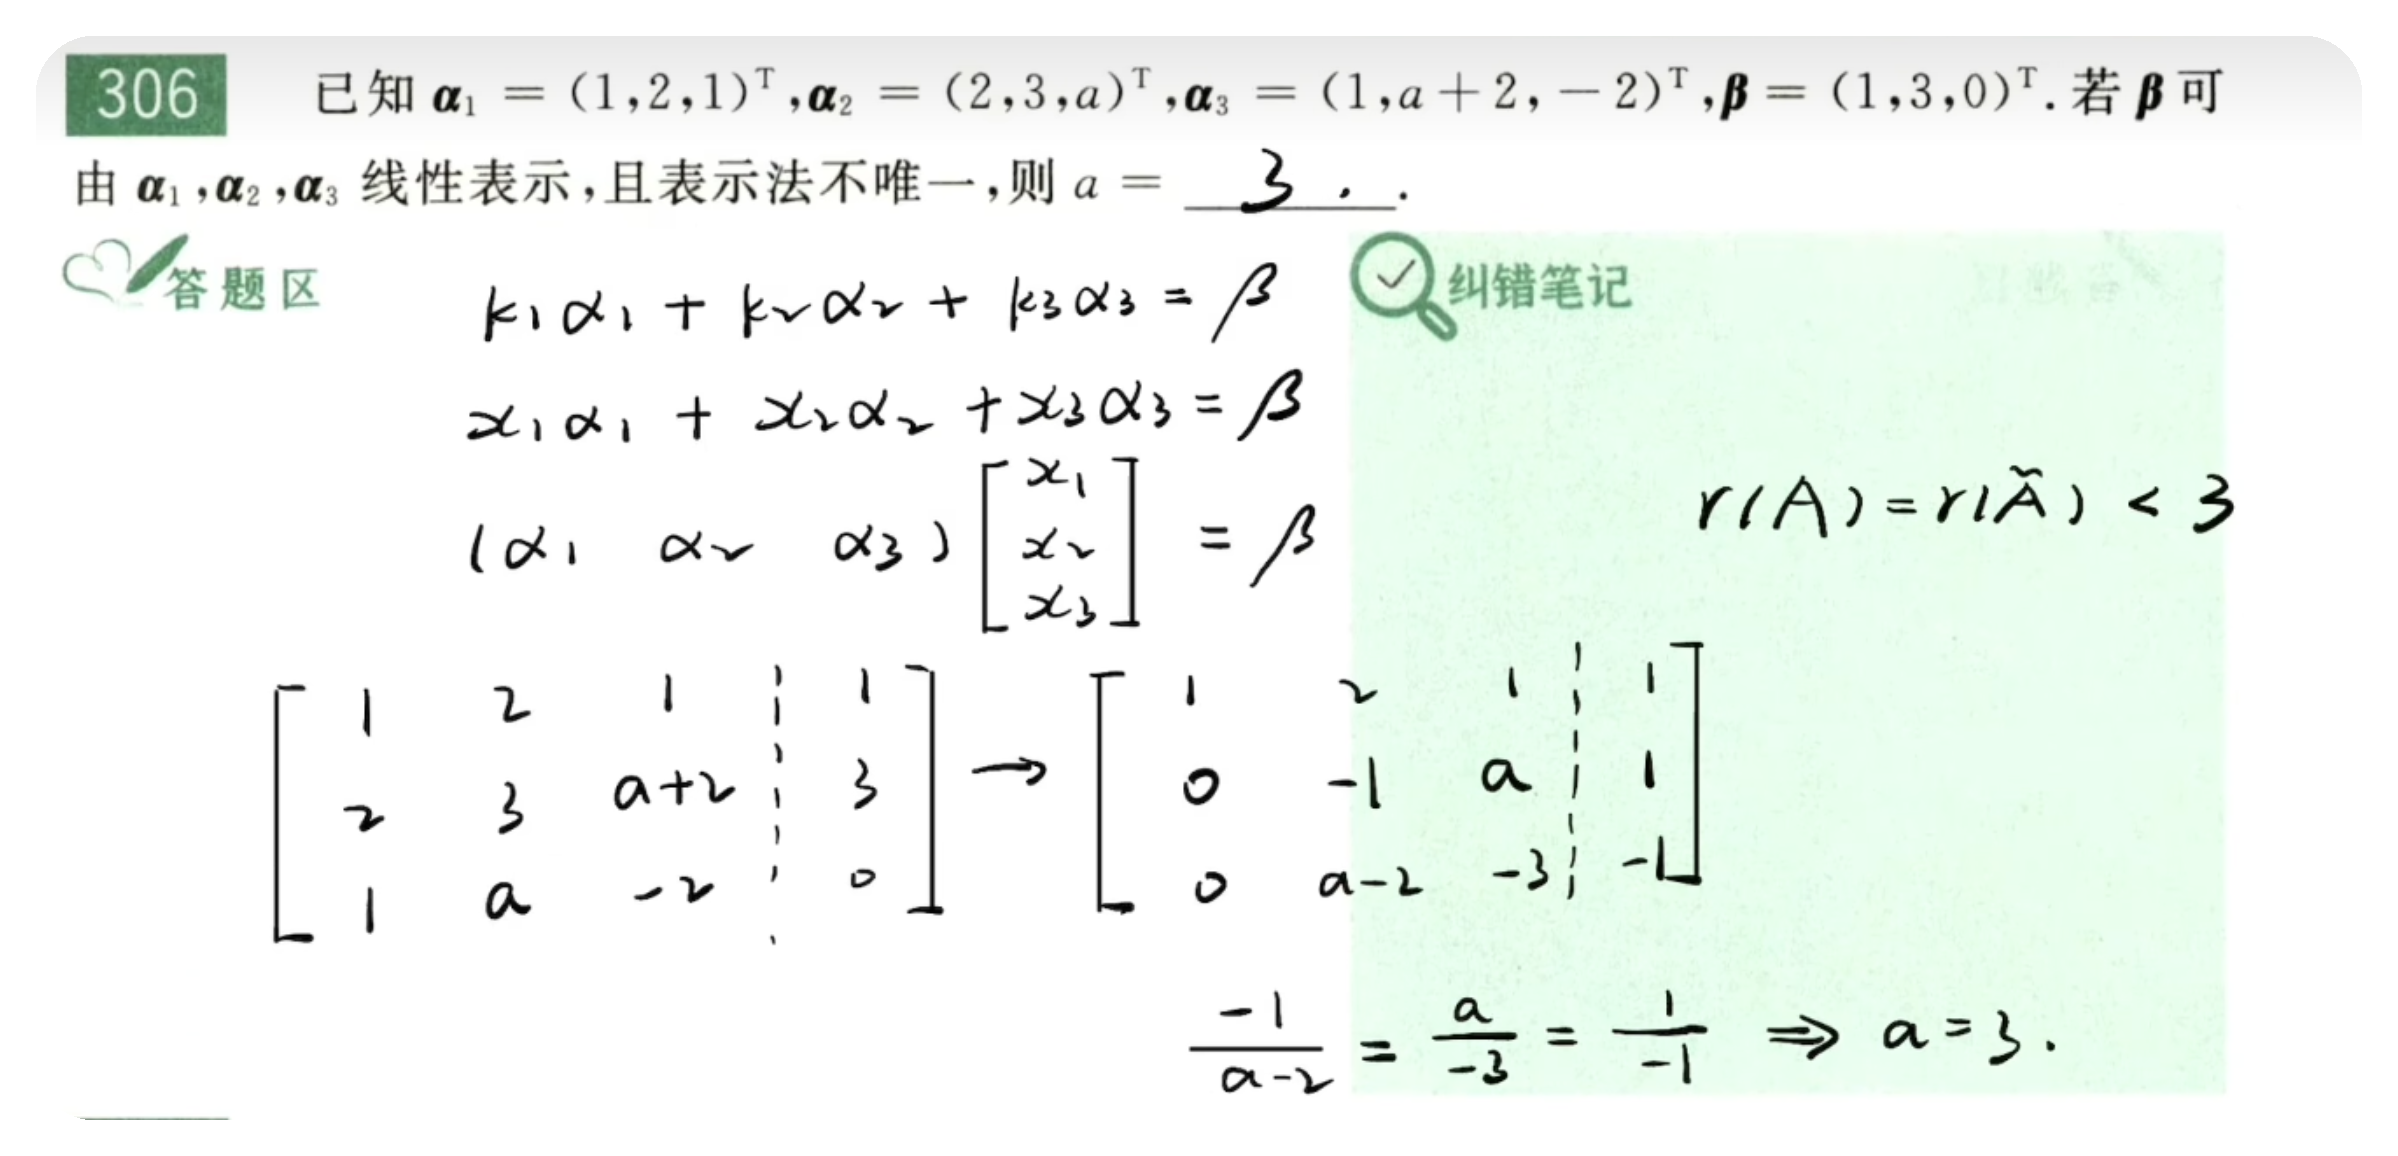 306 已知 α₁ = (1,2,1)ᵀ,α₂ = (2,3,a)ᵀ,α₃ = (1,a+2,-2)ᵀ,β = (1,3,0)ᵀ.若 β 可
由 α₁,α₂,α₃ 线性表示,且表示法不唯一,则 a = 3 . .
答题区
纠错笔记
k₁α₁ + k₂α₂ + k₃α₃ = β
x₁α₁ + x₂α₂ + x₃α₃ = β
(α₁ α₂ α₃) [x₁ x₂ x₃] = β
r(A) = r(Ã) < 3
[1 2 1 ¦ 1] → [1 2 1 ¦ 1]
[2 3 a+2 ¦ 3] [0 -1 a ¦ 1]
[1 a -2 ¦ 0] [0 a-2 -3 ¦ -1]
-1/(a-2) = a/-3 = 1/-1 ⇒ a = 3.